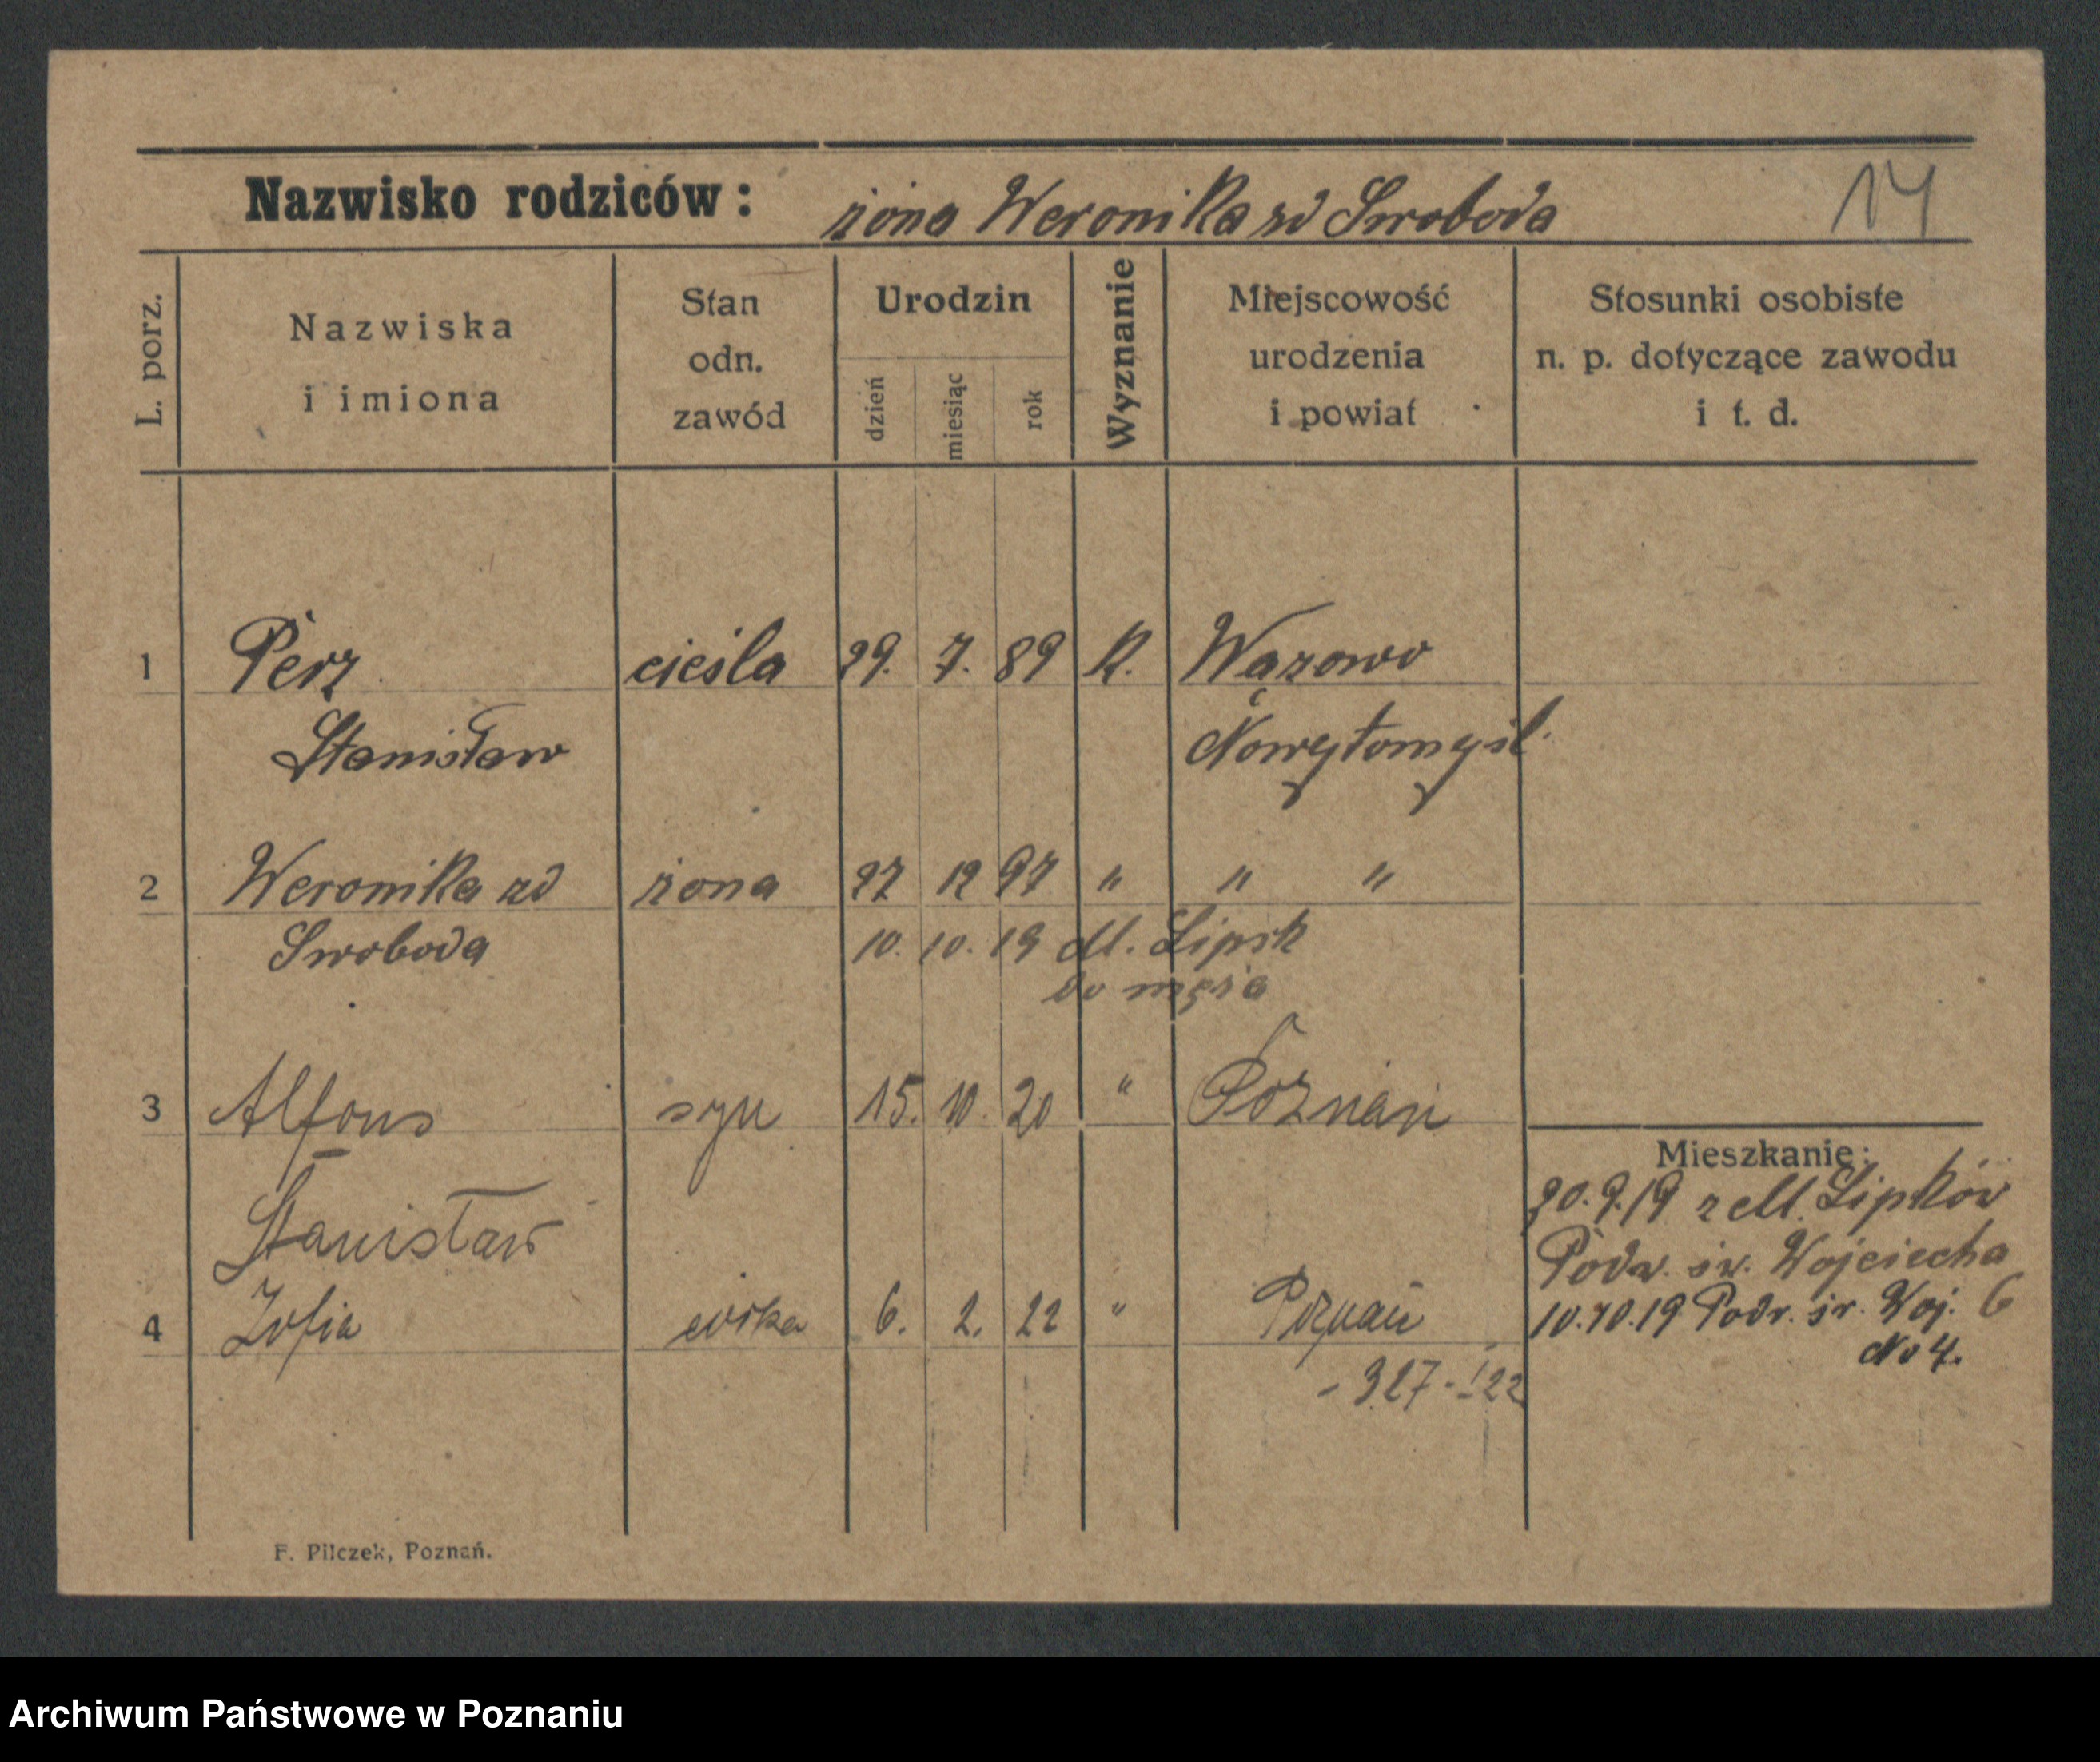 Nazwisko rodziców: żona Weronika zd Swoboda 14
L. porz.
Nazwiska
i imiona
Stan
odn.
zawód
Urodzin
dzień
miesiąc
rok
Wyznanie
Miejscowość
urodzenia
i powiat
Stosunki osobiste
n. p. dotyczące zawodu
i t. d.
1 Perz cieśla 29. 7. 89 K. Wązowo
Stanisław Nowytomyśl.
2 Weronika zd żona 27 12 97 " " "
Swoboda 10. 10. 19 M. Lipsk
do męża
3 Alfons syn 15. 10. 20 " Poznań
Stanisław
4 Zofia córka 6. 2. 22 " Poznań
- 327 - I 22
Mieszkanie:
20.9.19 z M. Lipków
Podw. św. Wojciecha
10.10.19 Podw. św. Woj. 6
No 4.
F. Pilczek, Poznań.
Archiwum Państwowe w Poznaniu